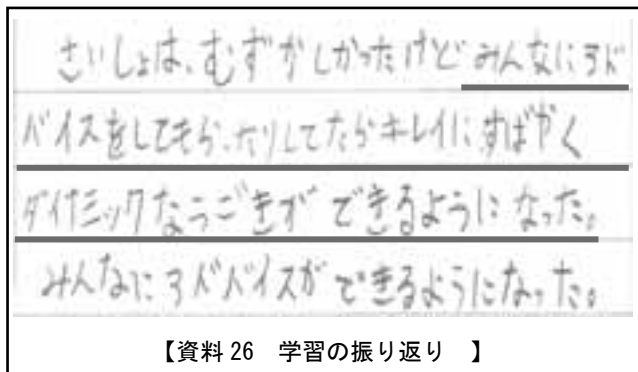 さいしょは、むずかしかったけどみんなにアド
バイスをしてもらったりしてたらキレイにすばやく
ダイナミックなうごきができるようになった。
みんなにアドバイスができるようになった。
【資料26 学習の振り返り 】